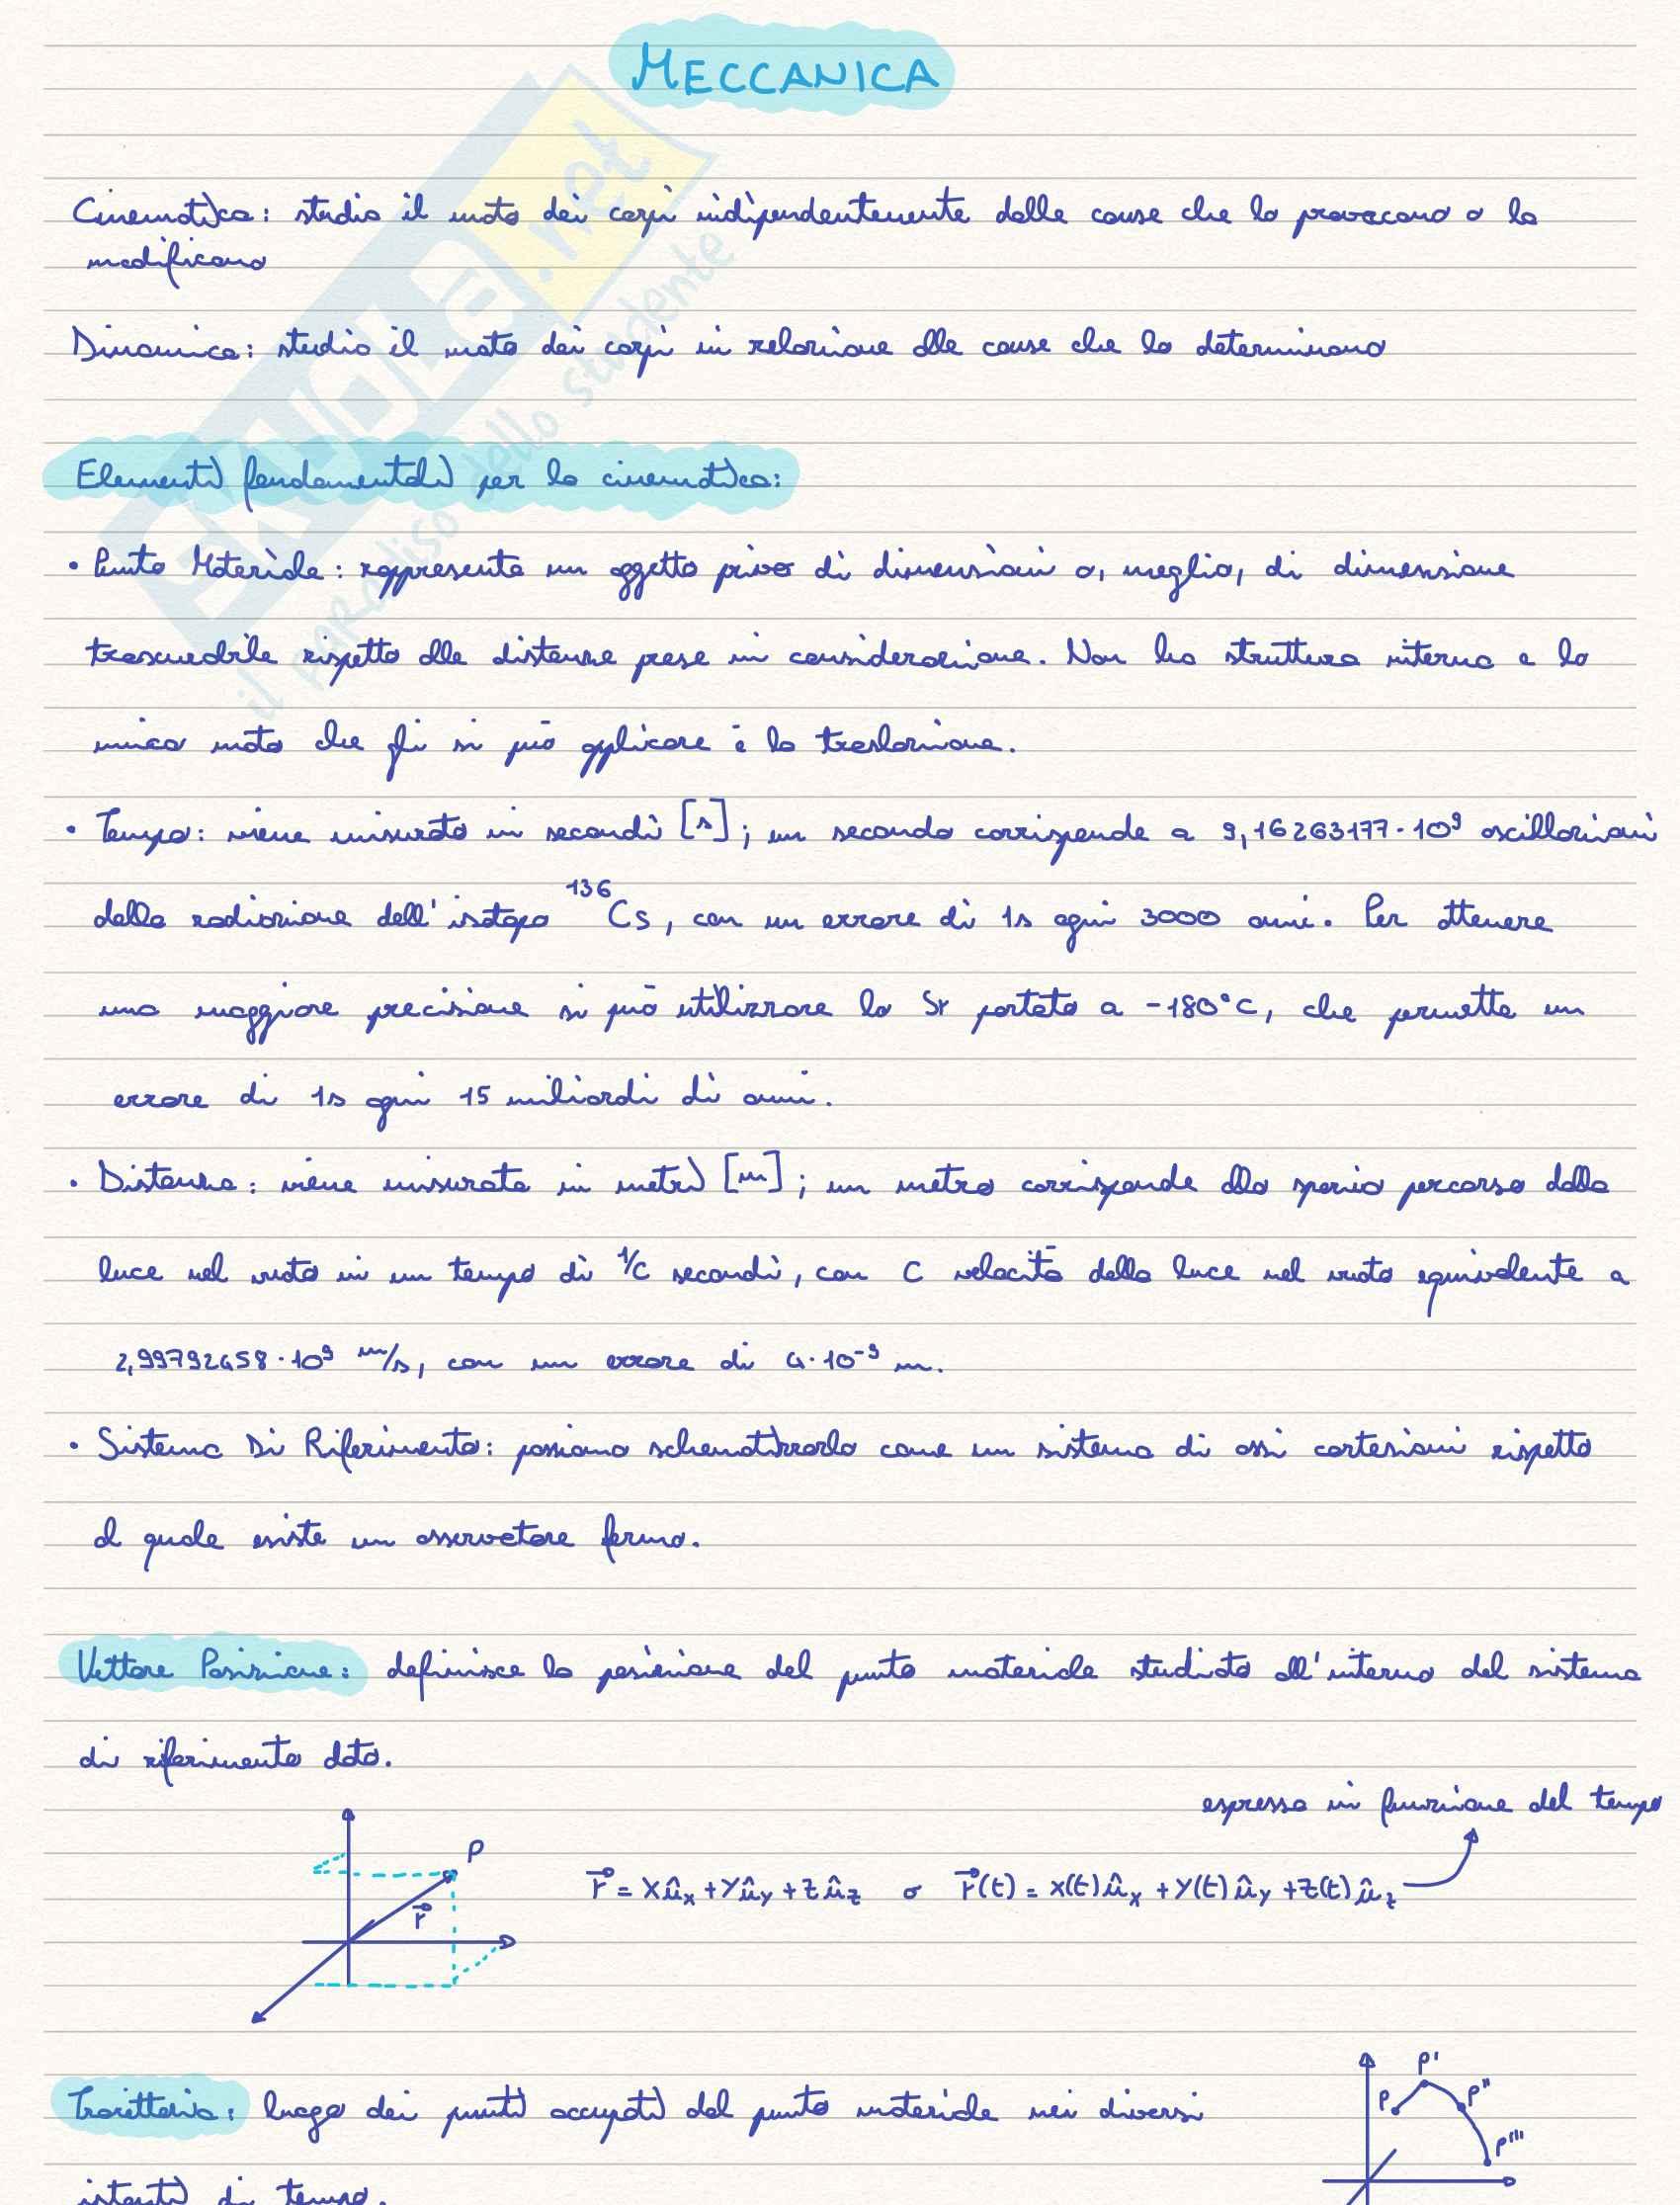 MECCANICA
Cinematica: studia il moto dei corpi indipendentemente dalle cause che lo provocano o lo
modificano
Dinamica: studia il moto dei corpi in relazione alle cause che lo determinano
Elementi fondamentali per la cinematica:
• Punto Materiale: rappresenta un oggetto privo di dimensioni o, meglio, di dimensione
trascurabile rispetto alle distanze prese in considerazione. Non ha struttura interna e lo
unico moto che gli si può applicare è la traslazione.
• Tempo: viene misurato in secondi [s]; un secondo corrisponde a 9,16263177·10⁹ oscillazioni
della radiazione dell'isotopo ¹³⁶Cs, con un errore di 1s ogni 3000 anni. Per ottenere
una maggiore precisione si può utilizzare lo Sr portato a -180°C, che permette un
errore di 1s ogni 15 miliardi di anni.
• Distanza: viene misurata in metri [m]; un metro corrisponde allo spazio percorso dalla
luce nel vuoto in un tempo di 1/c secondi, con c velocità della luce nel vuoto equivalente a
2,99792458·10⁹ m/s, con un errore di 4·10⁻⁹ m.
• Sistema Di Riferimento: possiamo schematizzarlo come un sistema di assi cartesiani rispetto
al quale esiste un osservatore fermo.
Vettore Posizione: definisce la posizione del punto materiale studiato all'interno del sistema
di riferimento dato.
espresso in funzione del tempo
P
r⃗
r⃗ = xû_x + yû_y + zû_z o r⃗(t) = x(t)û_x + y(t)û_y + z(t)û_z
Traiettoria: luogo dei punti occupati dal punto materiale nei diversi
istanti di tempo.
P
P'
P''
P'''
SKUOLA.net
il paradiso dello studente